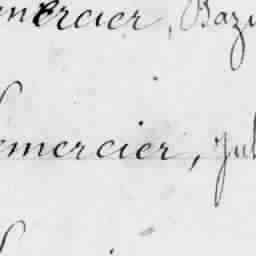 mercier, Bazi
emercier, Jul